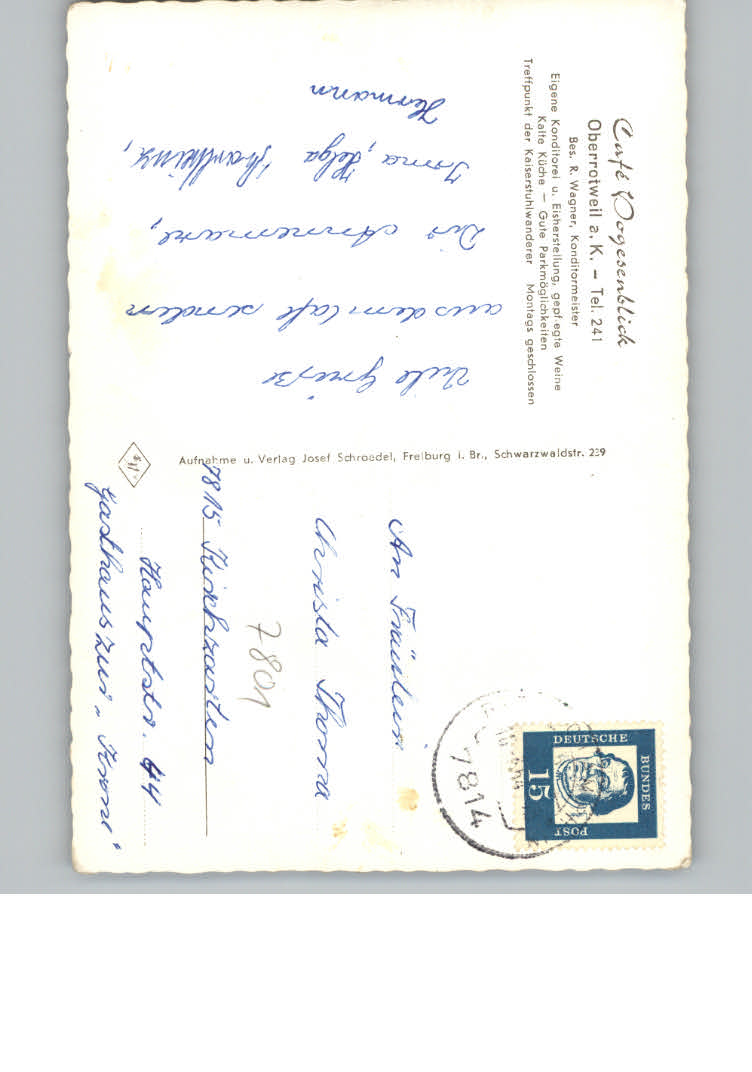 Café Vogesenblick
Oberrotweil a. K. – Tel. 241
Bes. R. Wagner, Konditormeister
Eigene Konditorei u. Eisherstellung, gepflegte Weine
Kalte Küche — Gute Parkmöglichkeiten
Treffpunkt der Kaiserstuhlwanderer Montags geschlossen
Viele Grüße
aus dem Cafe senden
Dir Annemarie,
Irma, Helga Karlheinz,
Hermann
Aufnahme u. Verlag Josef Schroedel, Freiburg i. Br., Schwarzwaldstr. 239
An Fräulein
Christa Thoma
7801
7815 Kirchzarten
Hauptstr. 44
Gasthaus zur „Krone"
DEUTSCHE
BUNDES
POST
15
7814